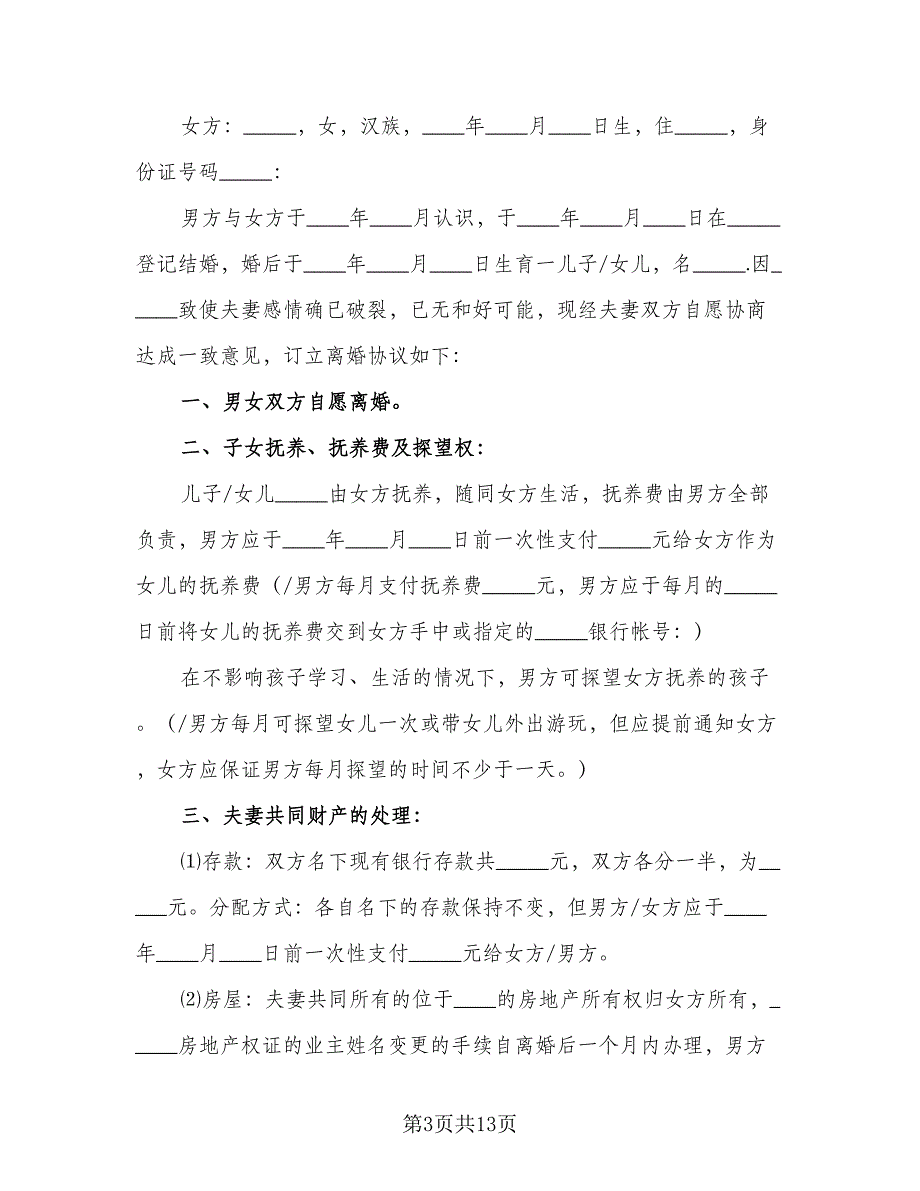 女方：_____，女，汉族，____年____月____日生，住_____，身
份证号码_____：
男方与女方于____年____月认识，于____年____月____日在_____
登记结婚，婚后于____年____月____日生育一儿子/女儿，名_____.因_
____致使夫妻感情确已破裂，已无和好可能，现经夫妻双方自愿协商
达成一致意见，订立离婚协议如下：
一、男女双方自愿离婚。
二、子女抚养、抚养费及探望权：
儿子/女儿_____由女方抚养，随同女方生活，抚养费由男方全部
负责，男方应于____年____月____日前一次性支付_____元给女方作为
女儿的抚养费（/男方每月支付抚养费_____元，男方应于每月的_____
日前将女儿的抚养费交到女方手中或指定的_____银行帐号：）
在不影响孩子学习、生活的情况下，男方可探望女方抚养的孩子
。（/男方每月可探望女儿一次或带女儿外出游玩，但应提前通知女方
，女方应保证男方每月探望的时间不少于一天。）
三、夫妻共同财产的处理：
⑴存款：双方名下现有银行存款共_____元，双方各分一半，为__
___元。分配方式：各自名下的存款保持不变，但男方/女方应于____
年____月____日前一次性支付_____元给女方/男方。
⑵房屋：夫妻共同所有的位于____的房地产所有权归女方所有，_
____房地产权证的业主姓名变更的手续自离婚后一个月内办理，男方
第3页共13页